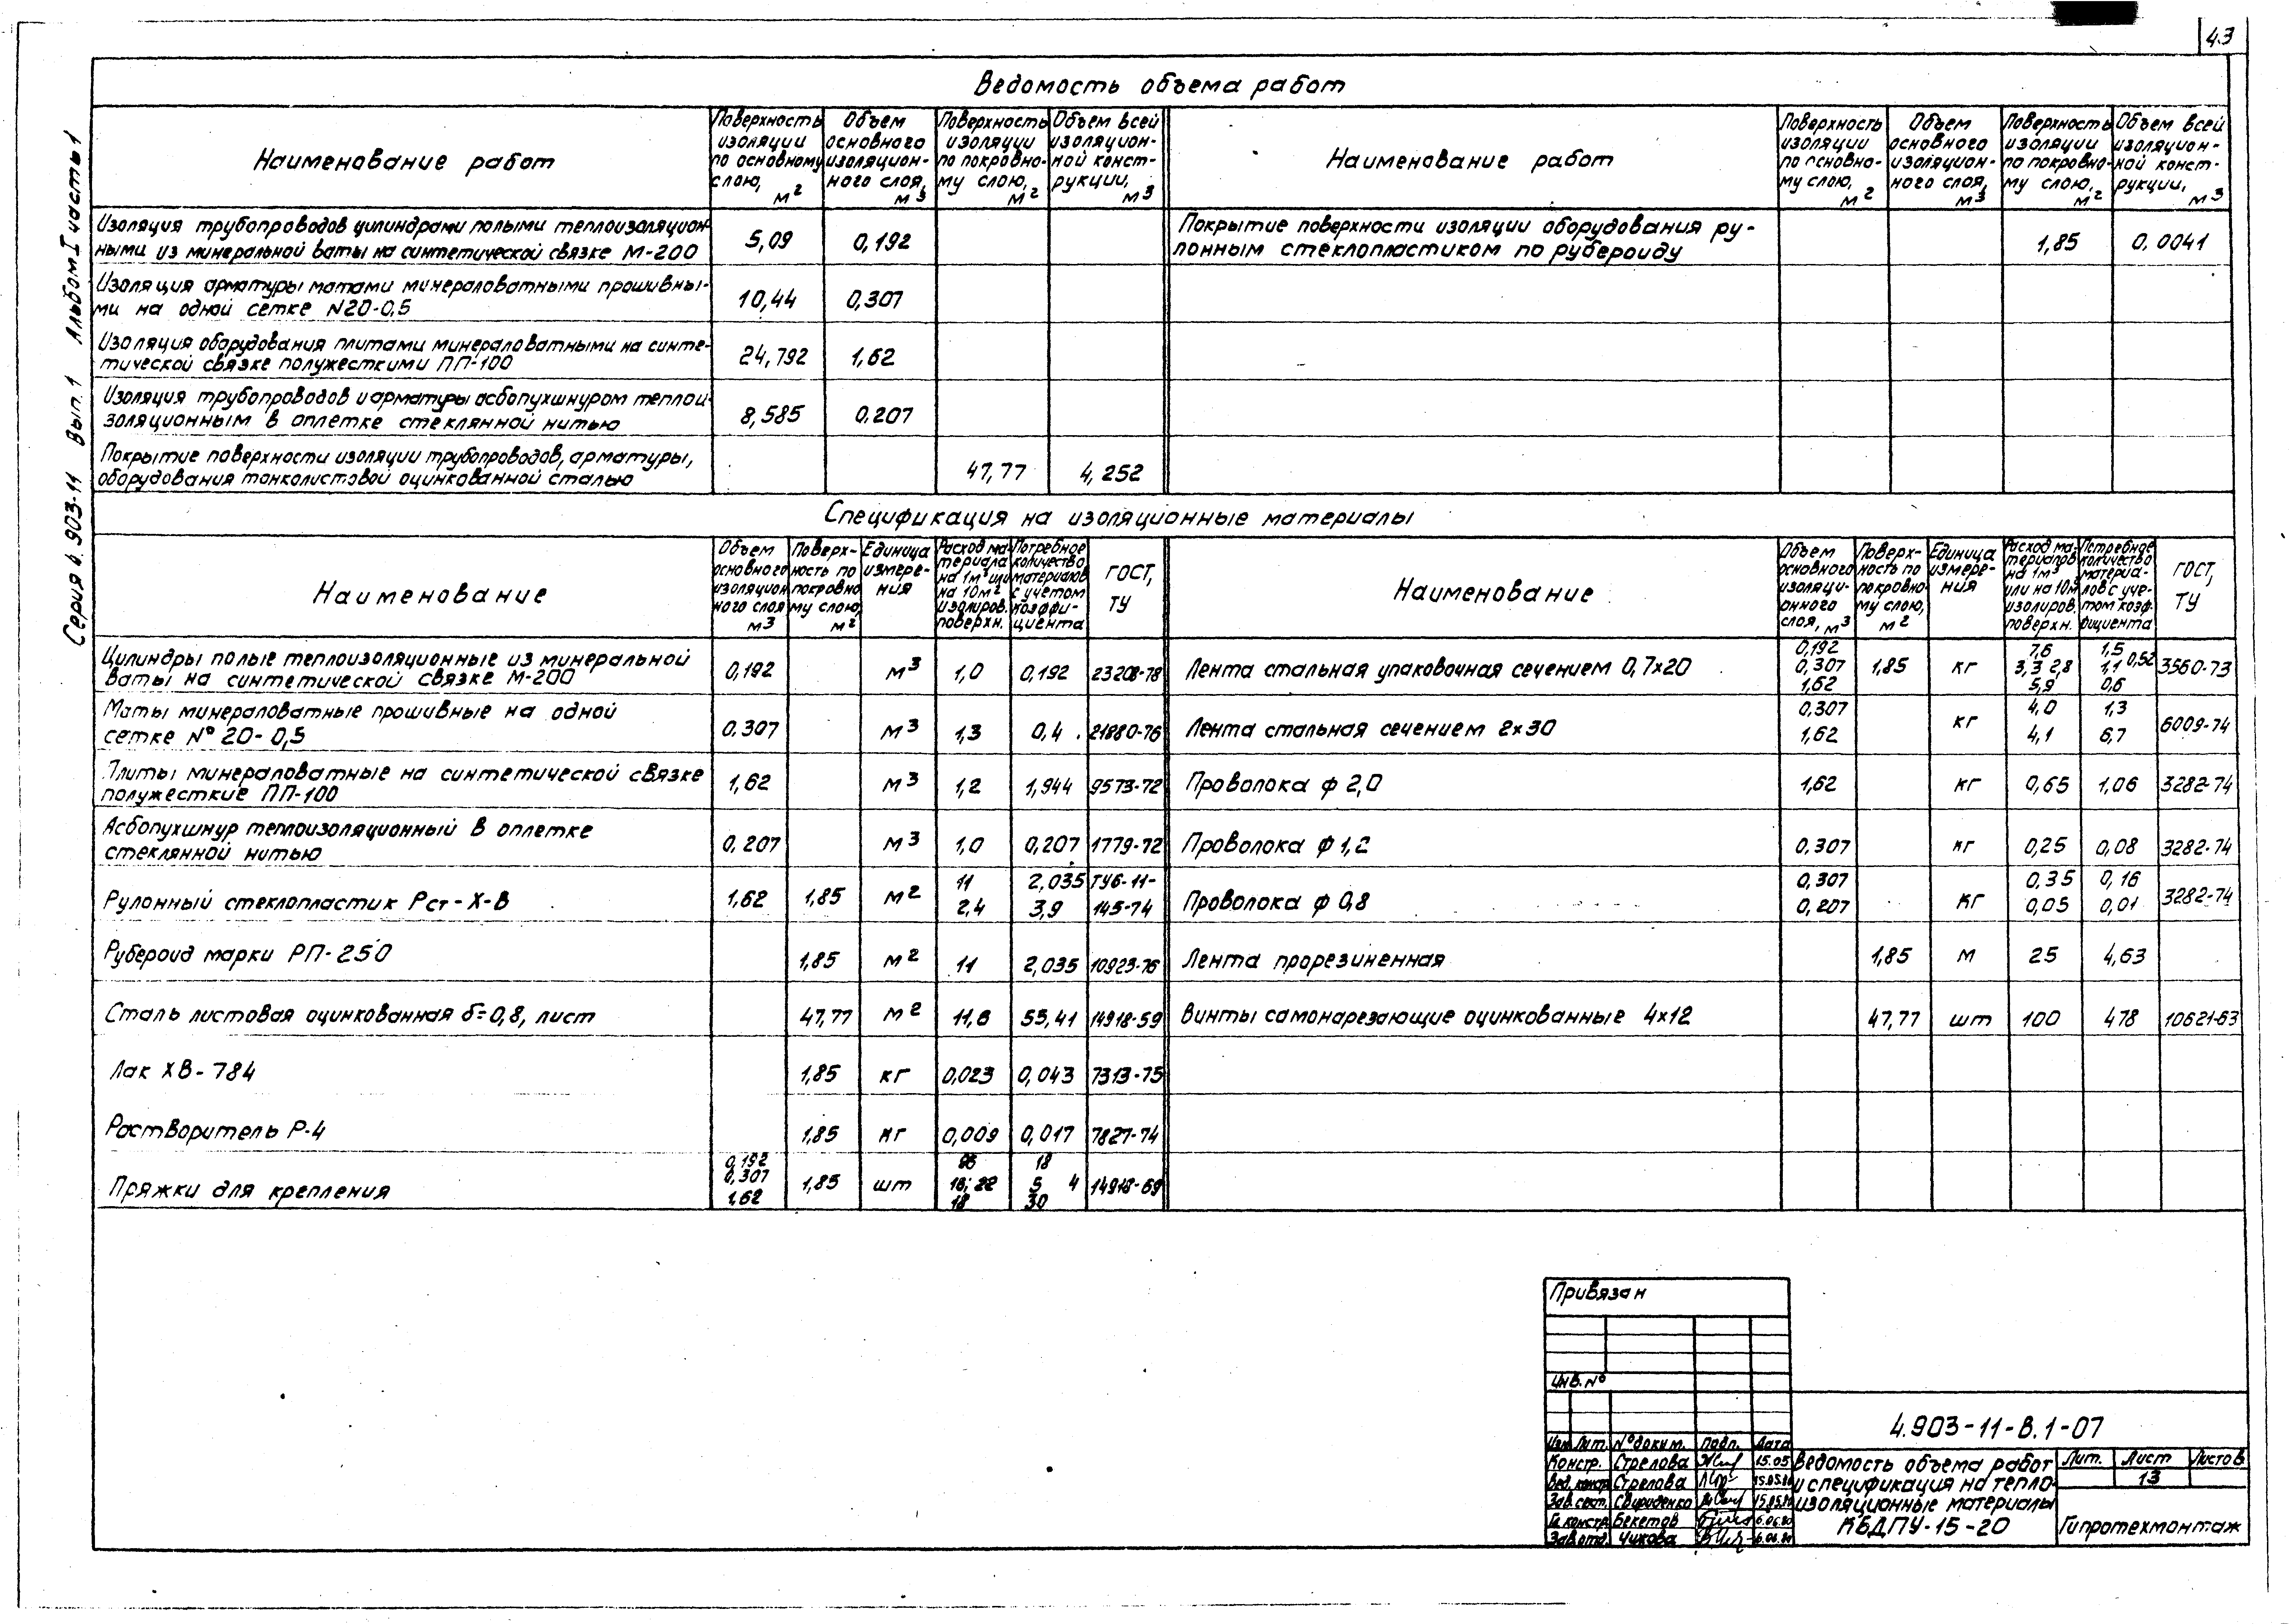 43
Серия 4.903-11 Вып. 1 Альбом I часть 1
Ведомость объема работ
Наименование работ
Поверхность изоляции по основному слою, м2
Объем основного изоляционного слоя, м3
Поверхность изоляции по покровному слою, м2
Объем всей изоляционной конструкции, м3
Наименование работ
Поверхность изоляции по основному слою, м2
Объем основного изоляционного слоя, м3
Поверхность изоляции по покровному слою, м2
Объем всей изоляционной конструкции, м3
Изоляция трубопроводов цилиндрами полыми теплоизоляцион-
ными из минеральной ваты на синтетической связке М-200 5,09 0,192
Покрытие поверхности изоляции оборудования ру-
лонным стеклопластиком по рубероиду 1,85 0,0041
Изоляция арматуры матами минераловатными прошивны-
ми на одной сетке N20-0,5 10,44 0,307
Изоляция оборудования плитами минераловатными на синте-
тической связке полужесткими ПП-100 24,792 1,62
Изоляция трубопроводов и арматуры асбопухшнуром теплои-
золяционным в оплетке стеклянной нитью 8,585 0,207
Покрытие поверхности изоляции трубопроводов, арматуры,
оборудования тонколистовой оцинкованной сталью 47,77 4,252
Спецификация на изоляционные материалы
Наименование
Объем основного изоляционного слоя м3
Поверхность по покровному слою, м2
Единица измерения
Расход материала на 1м3 или на 10м2 изолиров. поверхн.
Потребное количество материалов с учетом коэффициента
ГОСТ, ТУ
Наименование
Объем основного изоляционного слоя, м3
Поверхность по покровному слою, м2
Единица измерения
Расход материалов на 1м3 или на 10м изолиров. поверхн.
Потребное количество материалов с учетом коэффициента
ГОСТ, ТУ
Цилиндры полые теплоизоляционные из минеральной
ваты на синтетической связке М-200 0,192 м3 1,0 0,192 23208-78
Лента стальная упаковочная сечением 0,7х20 0,192 0,307 1,62 1,85 кг 7,6 3,3 2,8 5,9 1,5 1,1 0,52 0,6 3560-73
Маты минераловатные прошивные на одной
сетке N° 20-0,5 0.307 м3 1,3 0,4 21880-76
Лента стальная сечением 2х30 0,307 1,62 кг 4,0 4,1 1,3 6,7 6009-74
Плиты минераловатные на синтетической связке
полужесткие ПП-100 1,62 м3 1,2 1,944 9573-72
Проволока ф 2,0 1,62 кг 0,65 1,06 3282-74
Асбопухшнур теплоизоляционный в оплетке
стеклянной нитью 0,207 м3 1,0 0,207 1779-72
Проволока ф 1,2 0,307 кг 0,25 0,08 3282-74
Рулонный стеклопластик Рст-Х-В 1,62 1,85 м2 11 2,4 2,035 3,9 ТУ6-11-145-74
Проволока ф 0,8 0,307 0,207 кг 0,35 0,05 0,16 0,01 3282-74
Рубероид марки РП-250 1,85 м2 11 2,035 10923-76
Лента прорезиненная 1,85 м 25 4,63
Сталь листовая оцинкованная δ=0,8, лист 47,77 м2 11,6 55,41 14918-59
Винты самонарезающие оцинкованные 4х12 47,77 шт 100 478 10621-63
Лак ХВ-784 1,85 кг 0,023 0,043 7313-75
Растворитель Р-4 1,85 кг 0,009 0,017 7827-74
Пряжки для крепления 0,192 0,307 1,62 1,85 шт 16; 22 18 18 5 4 30 14918-69
Привязан
Инв. N°
4.903-11-В.1-07
Изм Лит. N° докум. Подп. Дата
Констр. Стрелова 15.05
Вед. констр Стрелова 15.05.80
Зав. сект. Свириденко 15.05.80
Гл. констр Бекетов 6.06.80
Зав. отд. Чижова 6.06.80
Ведомость объема работ
и спецификация на тепло-
изоляционные материалы
КБДПУ-15-20
Лит. Лист Листов
13
Гипротехмонтаж